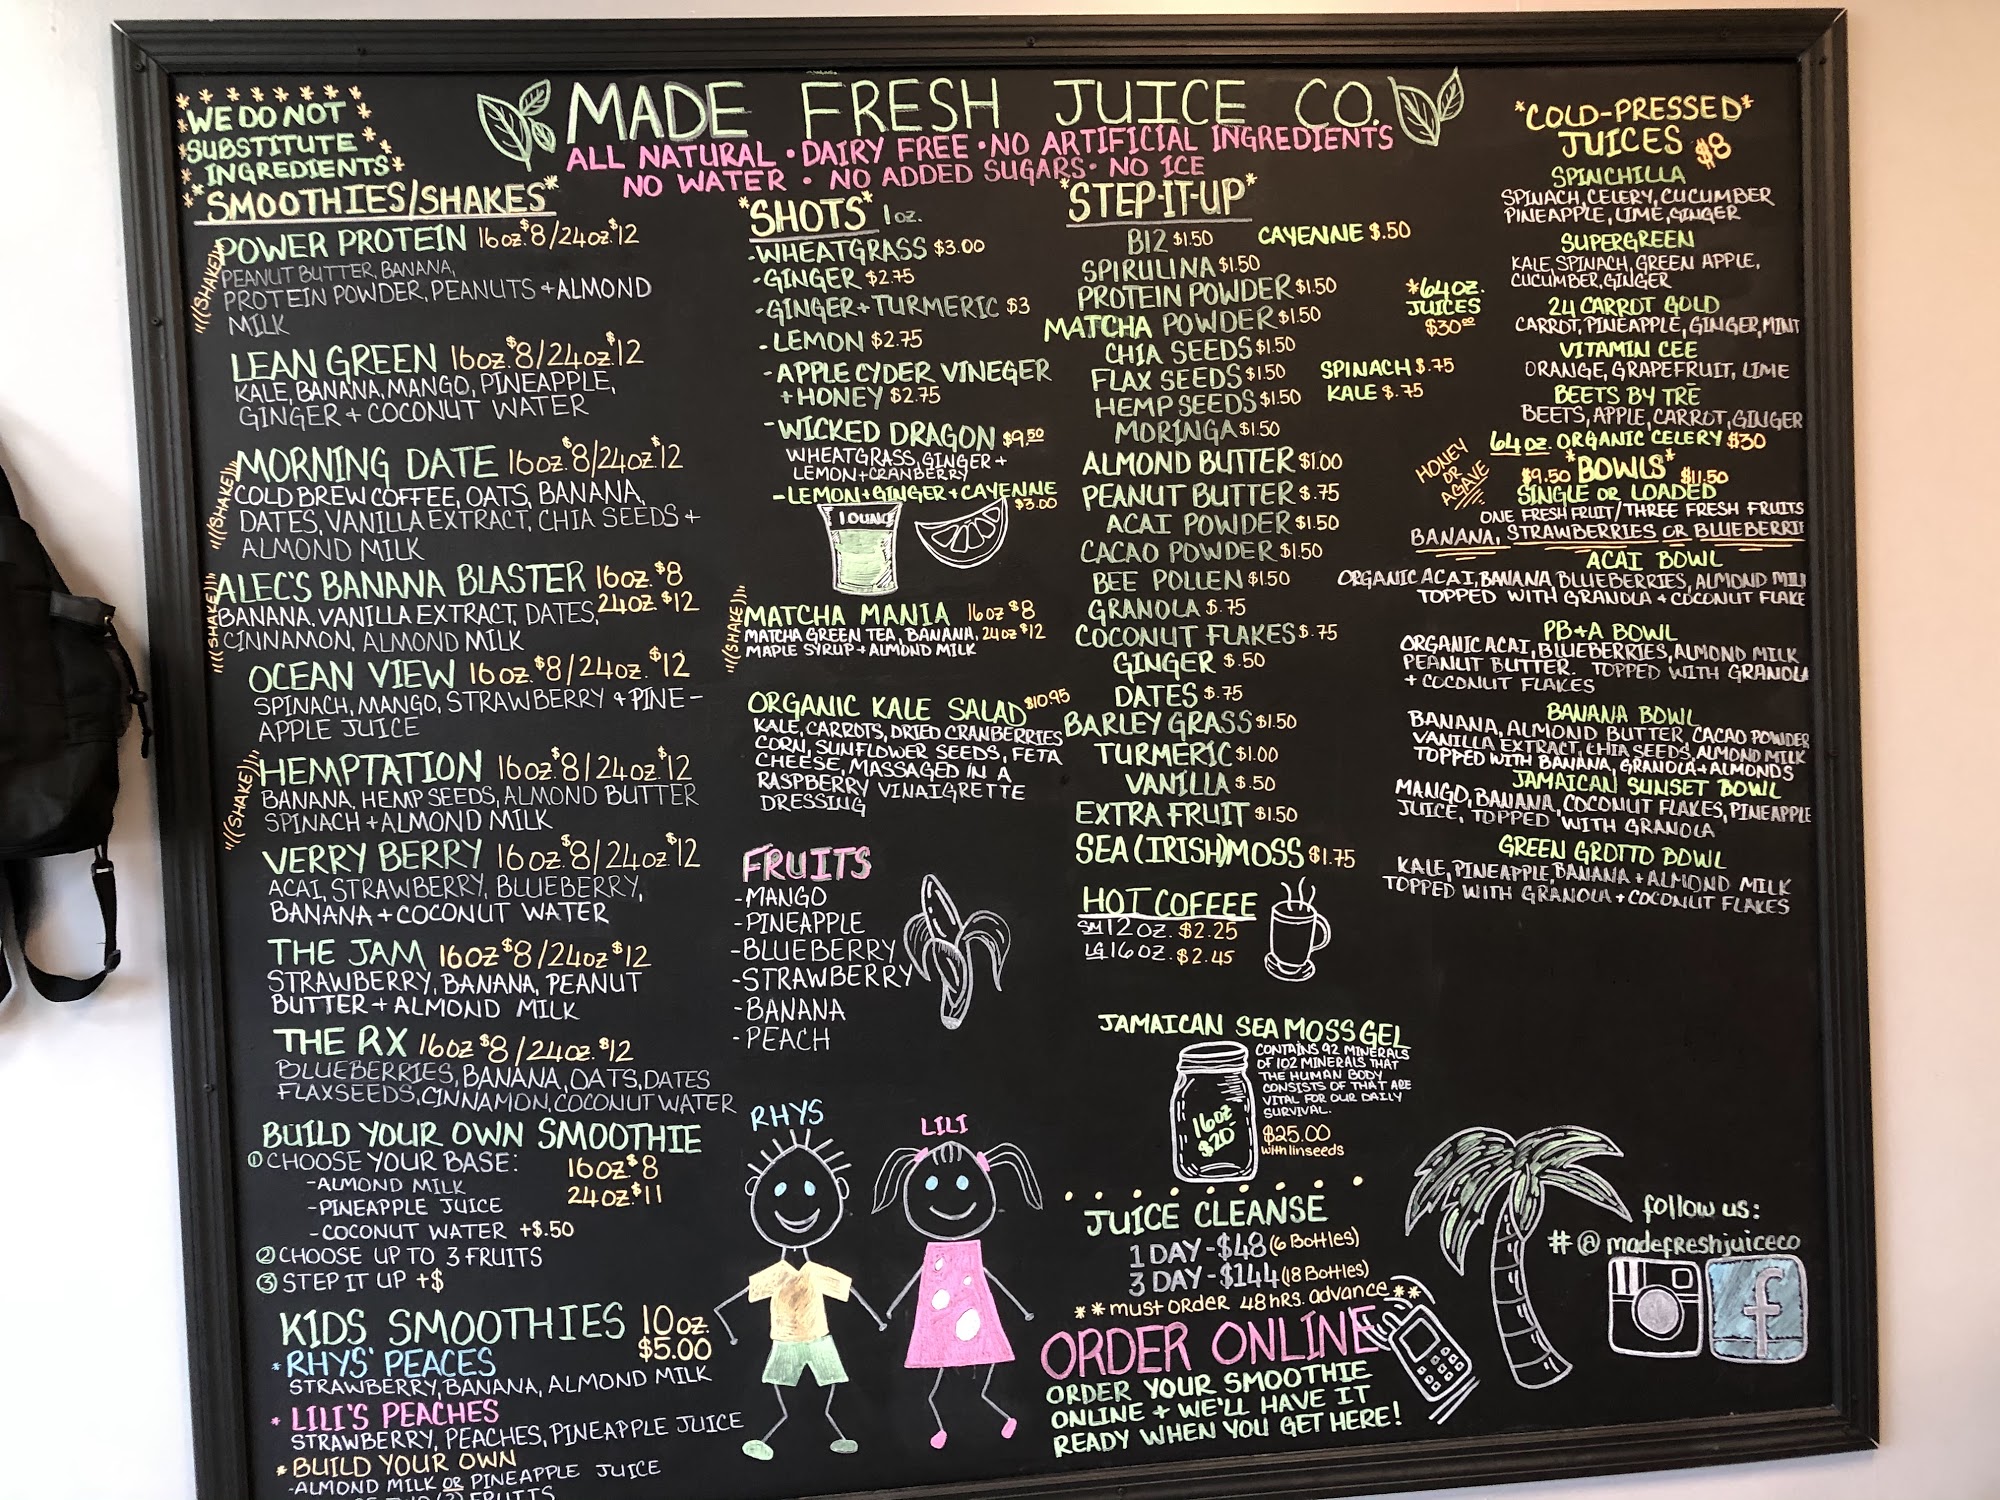 WE DO NOT
SUBSTITUTE
INGREDIENTS
MADE FRESH JUICE CO.
ALL NATURAL • DAIRY FREE • NO ARTIFICIAL INGREDIENTS
NO WATER • NO ADDED SUGARS • NO ICE
*SMOOTHIES/SHAKES*
(SHAKE)
POWER PROTEIN 16oz. $8/24oz. $12
PEANUT BUTTER, BANANA,
PROTEIN POWDER, PEANUTS + ALMOND
MILK
LEAN GREEN 16oz. $8/24oz. $12
KALE, BANANA, MANGO, PINEAPPLE,
GINGER + COCONUT WATER
(SHAKE)
MORNING DATE 16oz. $8/24oz. $12
COLD BREW COFFEE, OATS, BANANA,
DATES, VANILLA EXTRACT, CHIA SEEDS +
ALMOND MILK
(SHAKE)
ALEC'S BANANA BLASTER 16oz. $8
BANANA, VANILLA EXTRACT, DATES, 24oz. $12
CINNAMON, ALMOND MILK
OCEAN VIEW 16oz. $8/24oz. $12
SPINACH, MANGO, STRAWBERRY + PINE-
APPLE JUICE
(SHAKE)
HEMPTATION 16oz. $8/24oz. $12
BANANA, HEMP SEEDS, ALMOND BUTTER
SPINACH + ALMOND MILK
VERRY BERRY 16oz. $8/24oz. $12
ACAI, STRAWBERRY, BLUEBERRY,
BANANA + COCONUT WATER
THE JAM 16oz $8/24oz $12
STRAWBERRY, BANANA, PEANUT
BUTTER + ALMOND MILK
THE RX 16oz $8/24oz. $12
BLUEBERRIES, BANANA, OATS, DATES
FLAXSEEDS, CINNAMON, COCONUT WATER
BUILD YOUR OWN SMOOTHIE
① CHOOSE YOUR BASE: 16oz $8
-ALMOND MILK 24oz. $11
-PINEAPPLE JUICE
-COCONUT WATER +$.50
② CHOOSE UP TO 3 FRUITS
③ STEP IT UP +$
KIDS SMOOTHIES 10oz.
$5.00
* RHYS' PEACES
STRAWBERRY, BANANA, ALMOND MILK
* LILI'S PEACHES
STRAWBERRY, PEACHES, PINEAPPLE JUICE
* BUILD YOUR OWN
-ALMOND MILK OR PINEAPPLE JUICE
FRUITS
*SHOTS* 1oz.
-WHEATGRASS $3.00
-GINGER $2.75
-GINGER + TURMERIC $3
-LEMON $2.75
-APPLE CYDER VINEGER
+ HONEY $2.75
-WICKED DRAGON $9.50
WHEATGRASS, GINGER +
LEMON + CRANBERRY
-LEMON + GINGER + CAYENNE
$3.00
1 OUNCE
(SHAKE)
MATCHA MANIA 16oz $8
MATCHA GREEN TEA, BANANA, 24oz $12
MAPLE SYRUP + ALMOND MILK
ORGANIC KALE SALAD $10.95
KALE, CARROTS, DRIED CRANBERRIES
CORN, SUNFLOWER SEEDS, FETA
CHEESE, MASSAGED IN A
RASPBERRY VINAIGRETTE
DRESSING
FRUITS
-MANGO
-PINEAPPLE
-BLUEBERRY
-STRAWBERRY
-BANANA
-PEACH
RHYS
LILI
*STEP-IT-UP*
B12 $1.50 CAYENNE $.50
SPIRULINA $1.50
PROTEIN POWDER $1.50
MATCHA POWDER $1.50
CHIA SEEDS $1.50
FLAX SEEDS $1.50 SPINACH $.75
HEMP SEEDS $1.50 KALE $.75
MORINGA $1.50
ALMOND BUTTER $1.00
PEANUT BUTTER $.75
ACAI POWDER $1.50
CACAO POWDER $1.50
BEE POLLEN $1.50
GRANOLA $.75
COCONUT FLAKES $.75
GINGER $.50
DATES $.75
BARLEY GRASS $1.50
TURMERIC $1.00
VANILLA $.50
EXTRA FRUIT $1.50
SEA (IRISH) MOSS $1.75
HOT COFFEE
SM 12oz. $2.25
LG 16oz. $2.45
JAMAICAN SEA MOSS GEL
CONTAINS 92 MINERALS
OF 102 MINERALS THAT
THE HUMAN BODY
CONSISTS OF THAT ARE
VITAL FOR OUR DAILY
SURVIVAL.
16oz
$20
$25.00
with linseeds
JUICE CLEANSE
1 DAY - $48 (6 Bottles)
3 DAY - $144 (18 Bottles)
**must order 48 hrs. advance**
ORDER ONLINE
ORDER YOUR SMOOTHIE
ONLINE + WE'LL HAVE IT
READY WHEN YOU GET HERE!
*COLD-PRESSED*
JUICES $8
SPINCHILLA
SPINACH, CELERY, CUCUMBER
PINEAPPLE, LIME, GINGER
SUPERGREEN
KALE, SPINACH, GREEN APPLE,
CUCUMBER, GINGER
*64oz.
JUICES
$30.00
24 CARROT GOLD
CARROT, PINEAPPLE, GINGER, MINT
VITAMIN CEE
ORANGE, GRAPEFRUIT, LIME
BEETS BY TRĒ
BEETS, APPLE, CARROT, GINGER
64oz. ORGANIC CELERY $30
HONEY
OR
AGAVE
$9.50 *BOWLS* $11.50
SINGLE OR LOADED
ONE FRESH FRUIT/THREE FRESH FRUITS
BANANA, STRAWBERRIES OR BLUEBERRIE
ACAI BOWL
ORGANIC ACAI, BANANA, BLUEBERRIES, ALMOND MILK
TOPPED WITH GRANOLA + COCONUT FLAKE
PB+A BOWL
ORGANIC ACAI, BLUEBERRIES, ALMOND MILK
PEANUT BUTTER. TOPPED WITH GRANOLA
+ COCONUT FLAKES
BANANA BOWL
BANANA, ALMOND BUTTER, CACAO POWDER
VANILLA EXTRACT, CHIA SEEDS, ALMOND MILK
TOPPED WITH BANANA, GRANOLA + ALMONDS
JAMAICAN SUNSET BOWL
MANGO, BANANA, COCONUT FLAKES, PINEAPPLE
JUICE, TOPPED WITH GRANOLA
GREEN GROTTO BOWL
KALE, PINEAPPLE, BANANA + ALMOND MILK
TOPPED WITH GRANOLA + COCONUT FLAKES
follow us:
# @ madefreshjuiceco
f